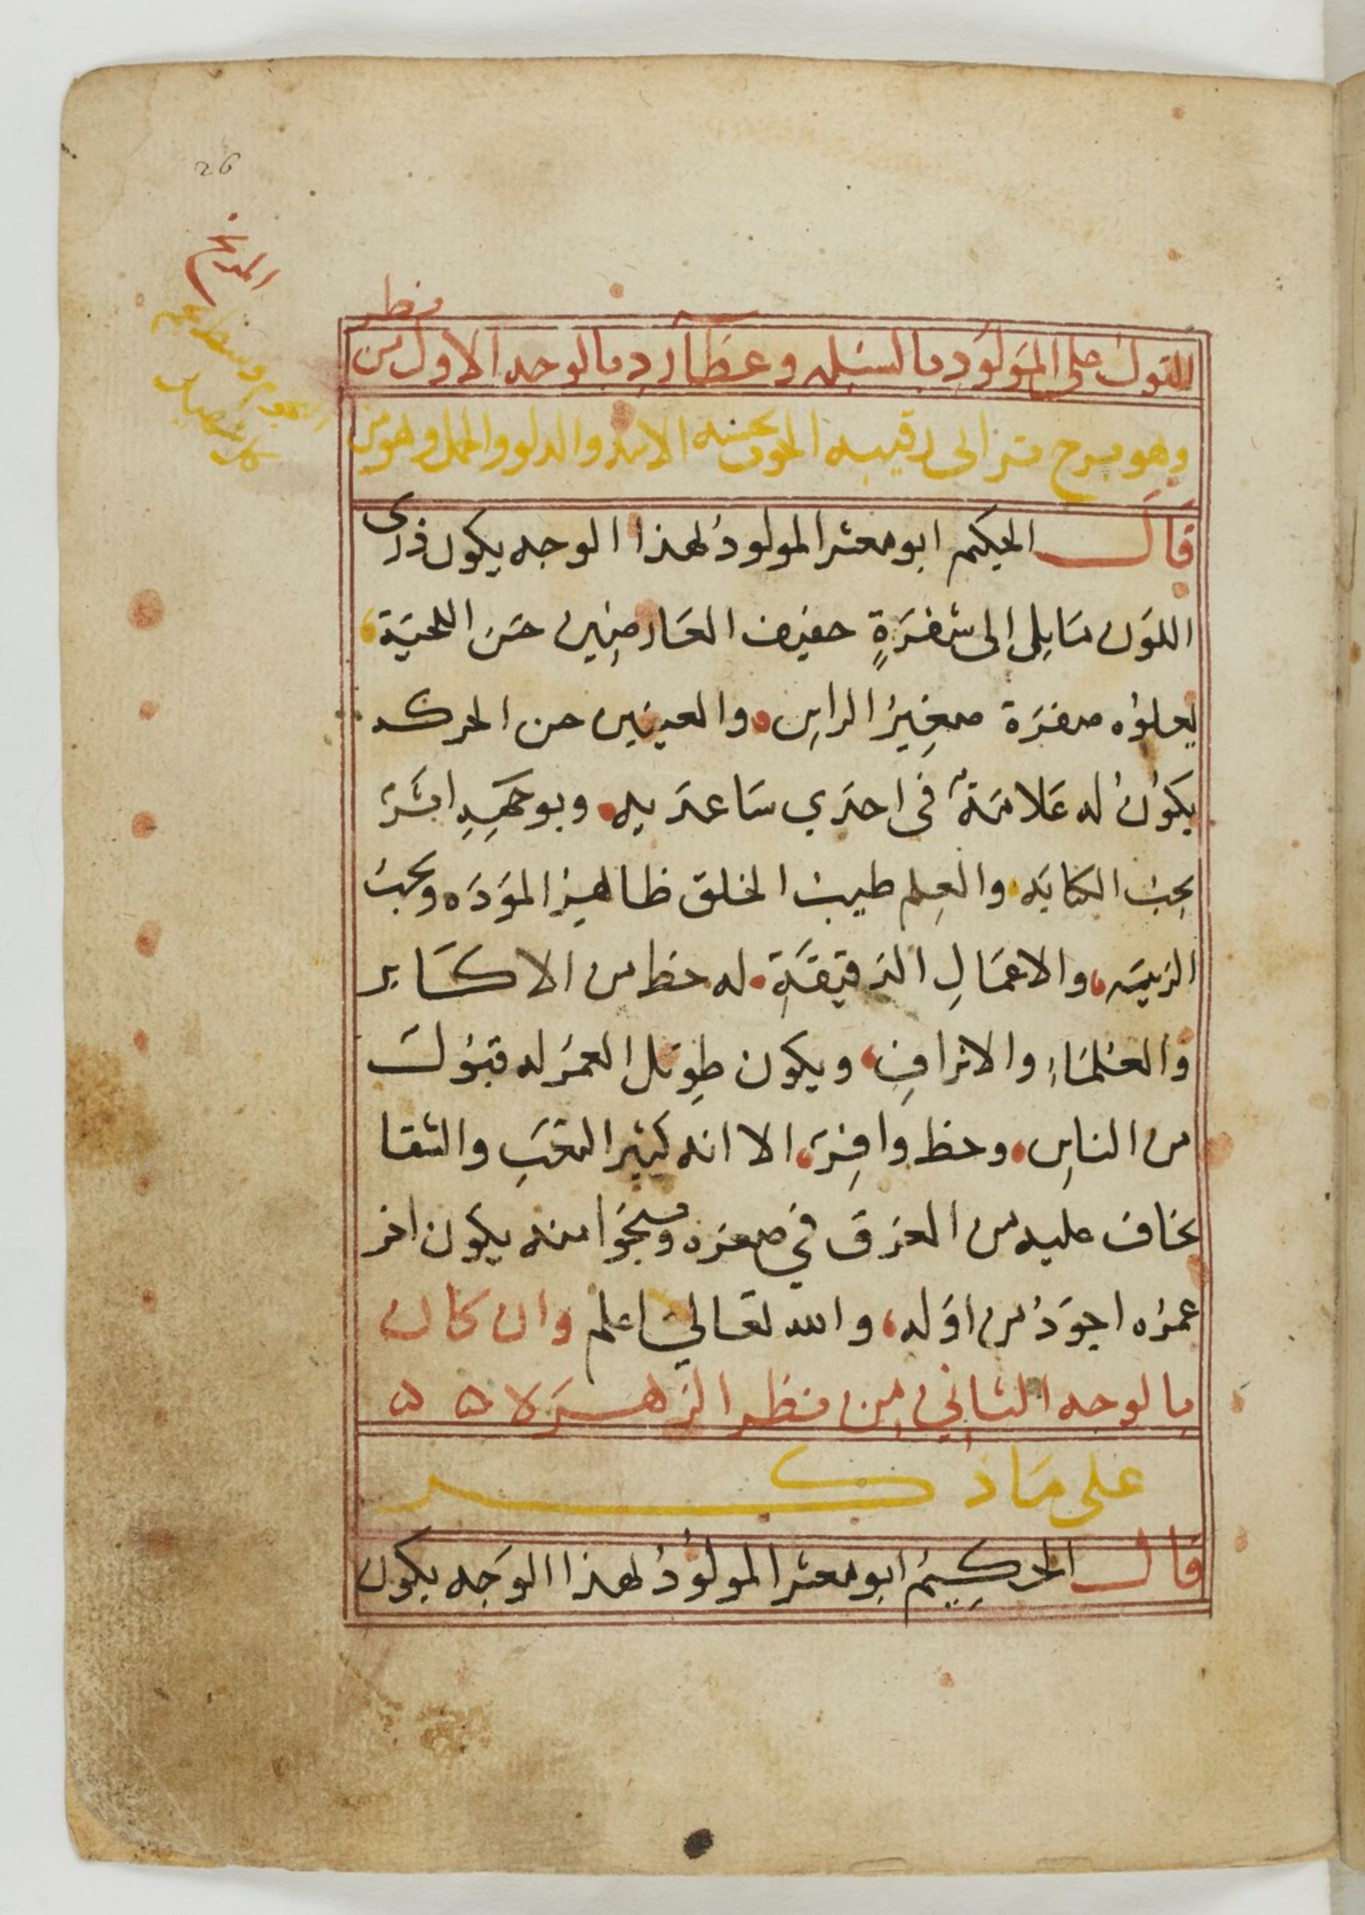 26
المريخ
نظر
القول على المولود بالسنبله وعطارد بالوجه الاول من
وهو برج الحوت الاسد والدلو والحمل وهو من
قال الحكيم ابو معشر المولود لهذا الوجه يكون دري
اللون مايلى الى شقرة خفيف العارضين حسن اللحية
يعلوه صفرة صغير الراس والعينين حسن الحركه
يكون له علامة فى احدي ساعديه وبوجهه اثر
يحب الكتابه والعلم طيب الخلق ظاهر المودة ويحب
الزينه والاعمال الدقيقة له حظ من الاكابر
والعلماء والاشراف ويكون طويل العمر له قبول
من الناس وحظ وافر الا انه كثير التعب والشقا
يخاف عليه من الغرق في صغره وينجوا منه يكون اخر
عمره اجود من اوله والله تعالى اعلم وان كان
بالوجه الثاني من نظر الزهرة ه ه
على ما ذكر
قال الحكيم ابو معشر المولود لهذا الوجه يكون